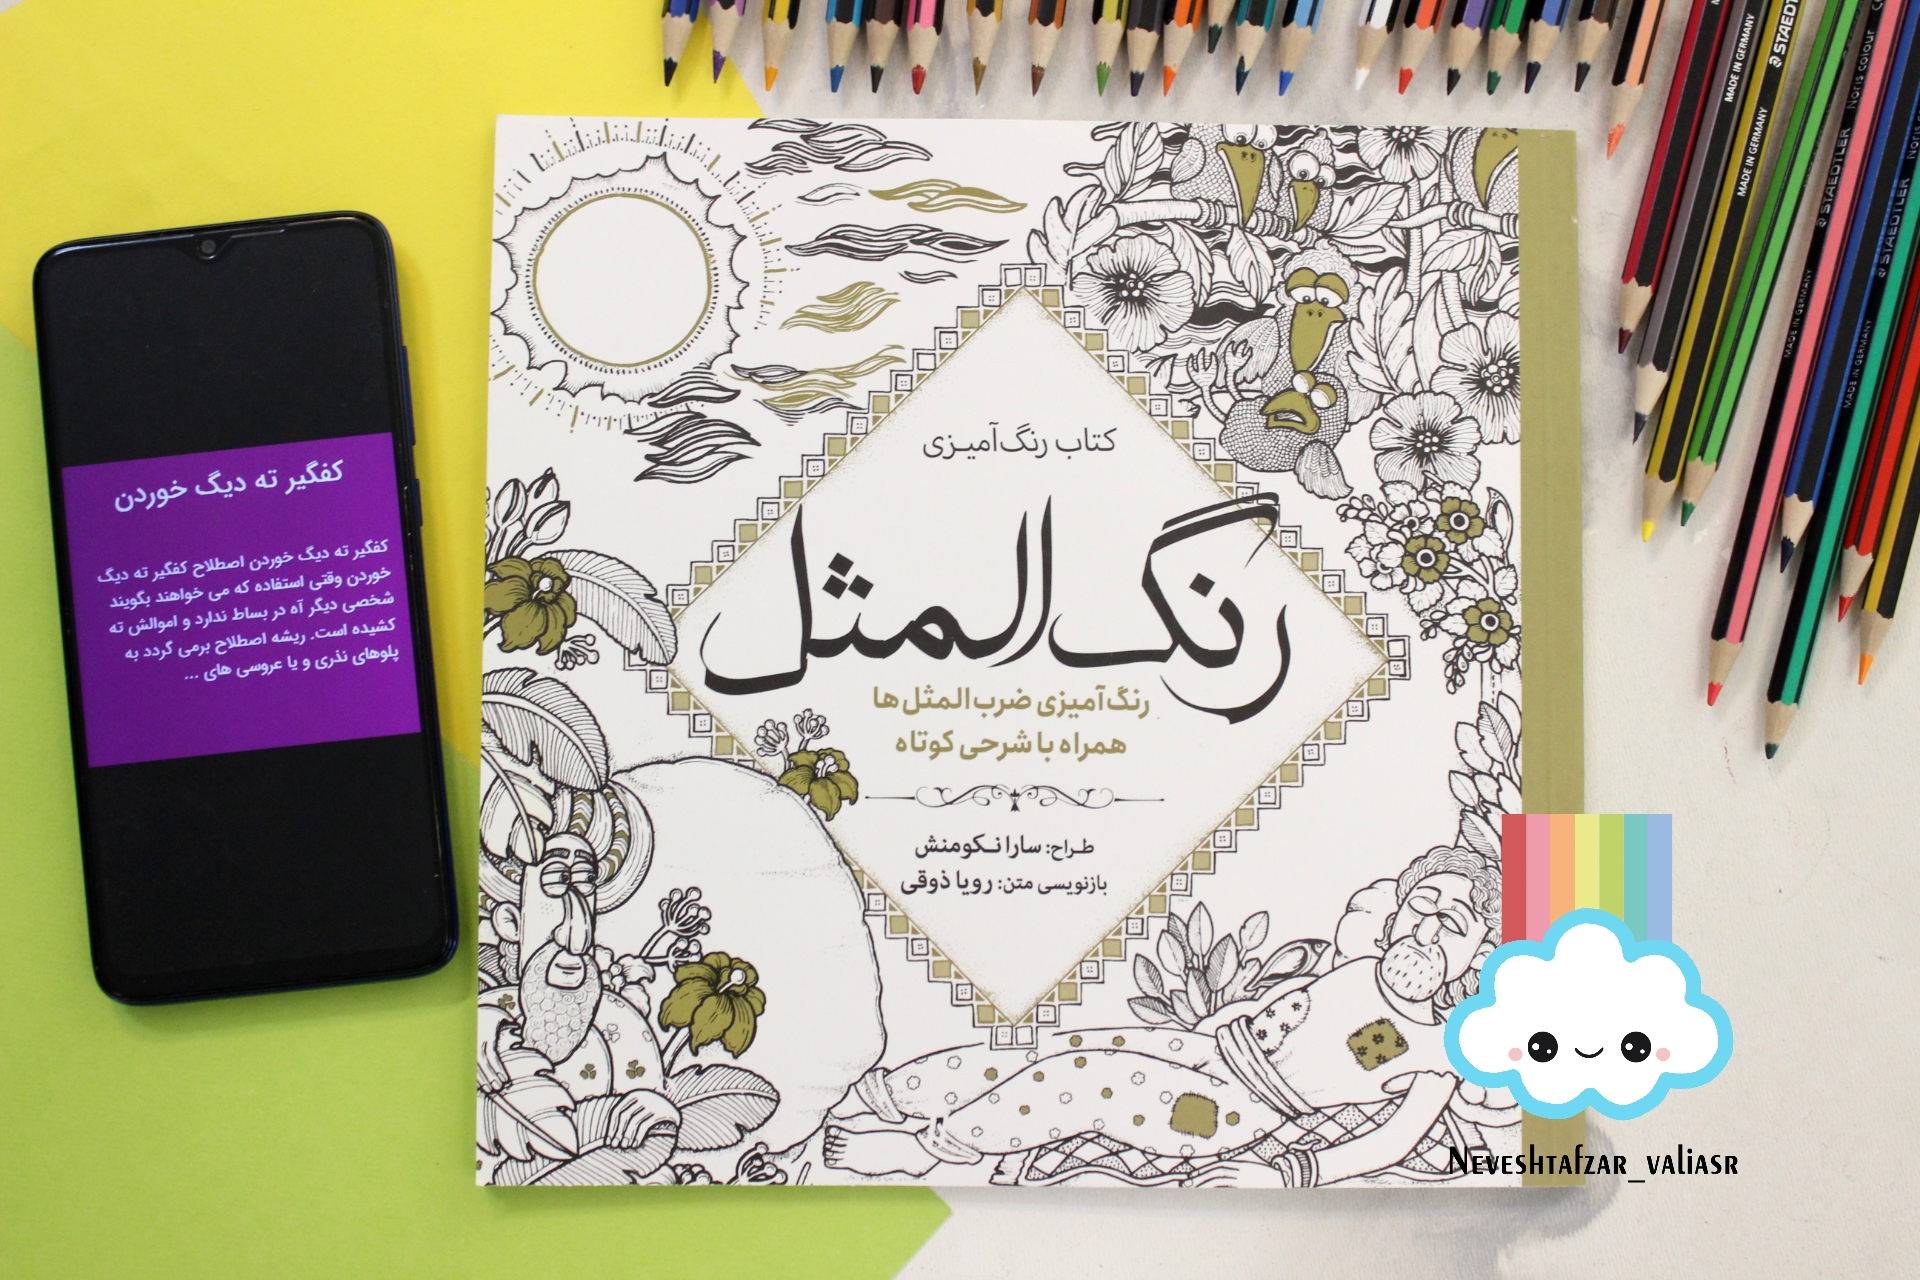 کفگیر ته دیگ خوردن
کفگیر ته دیگ خوردن اصطلاح کفگیر ته دیگ
خوردن وقتی استفاده که می خواهند بگویند
شخصی دیگر آه در بساط ندارد و اموالش ته
کشیده است. ریشه اصطلاح برمی گردد به
پلوهای نذری و یا عروسی های ...
کتاب رنگ‌آمیزی
رنگ المثل
رنگ‌آمیزی ضرب‌المثل‌ها
همراه با شرحی کوتاه
طراح: سارا نکومنش
بازنویسی متن: رویا ذوقی
MADE IN GERMANY
STAEDTLER
MADE IN GERMANY
STAEDTLER
Noris colour
STAEDTLER
MADE IN GERMANY
MADE IN GERMANY
Neveshtafzar_valiasr